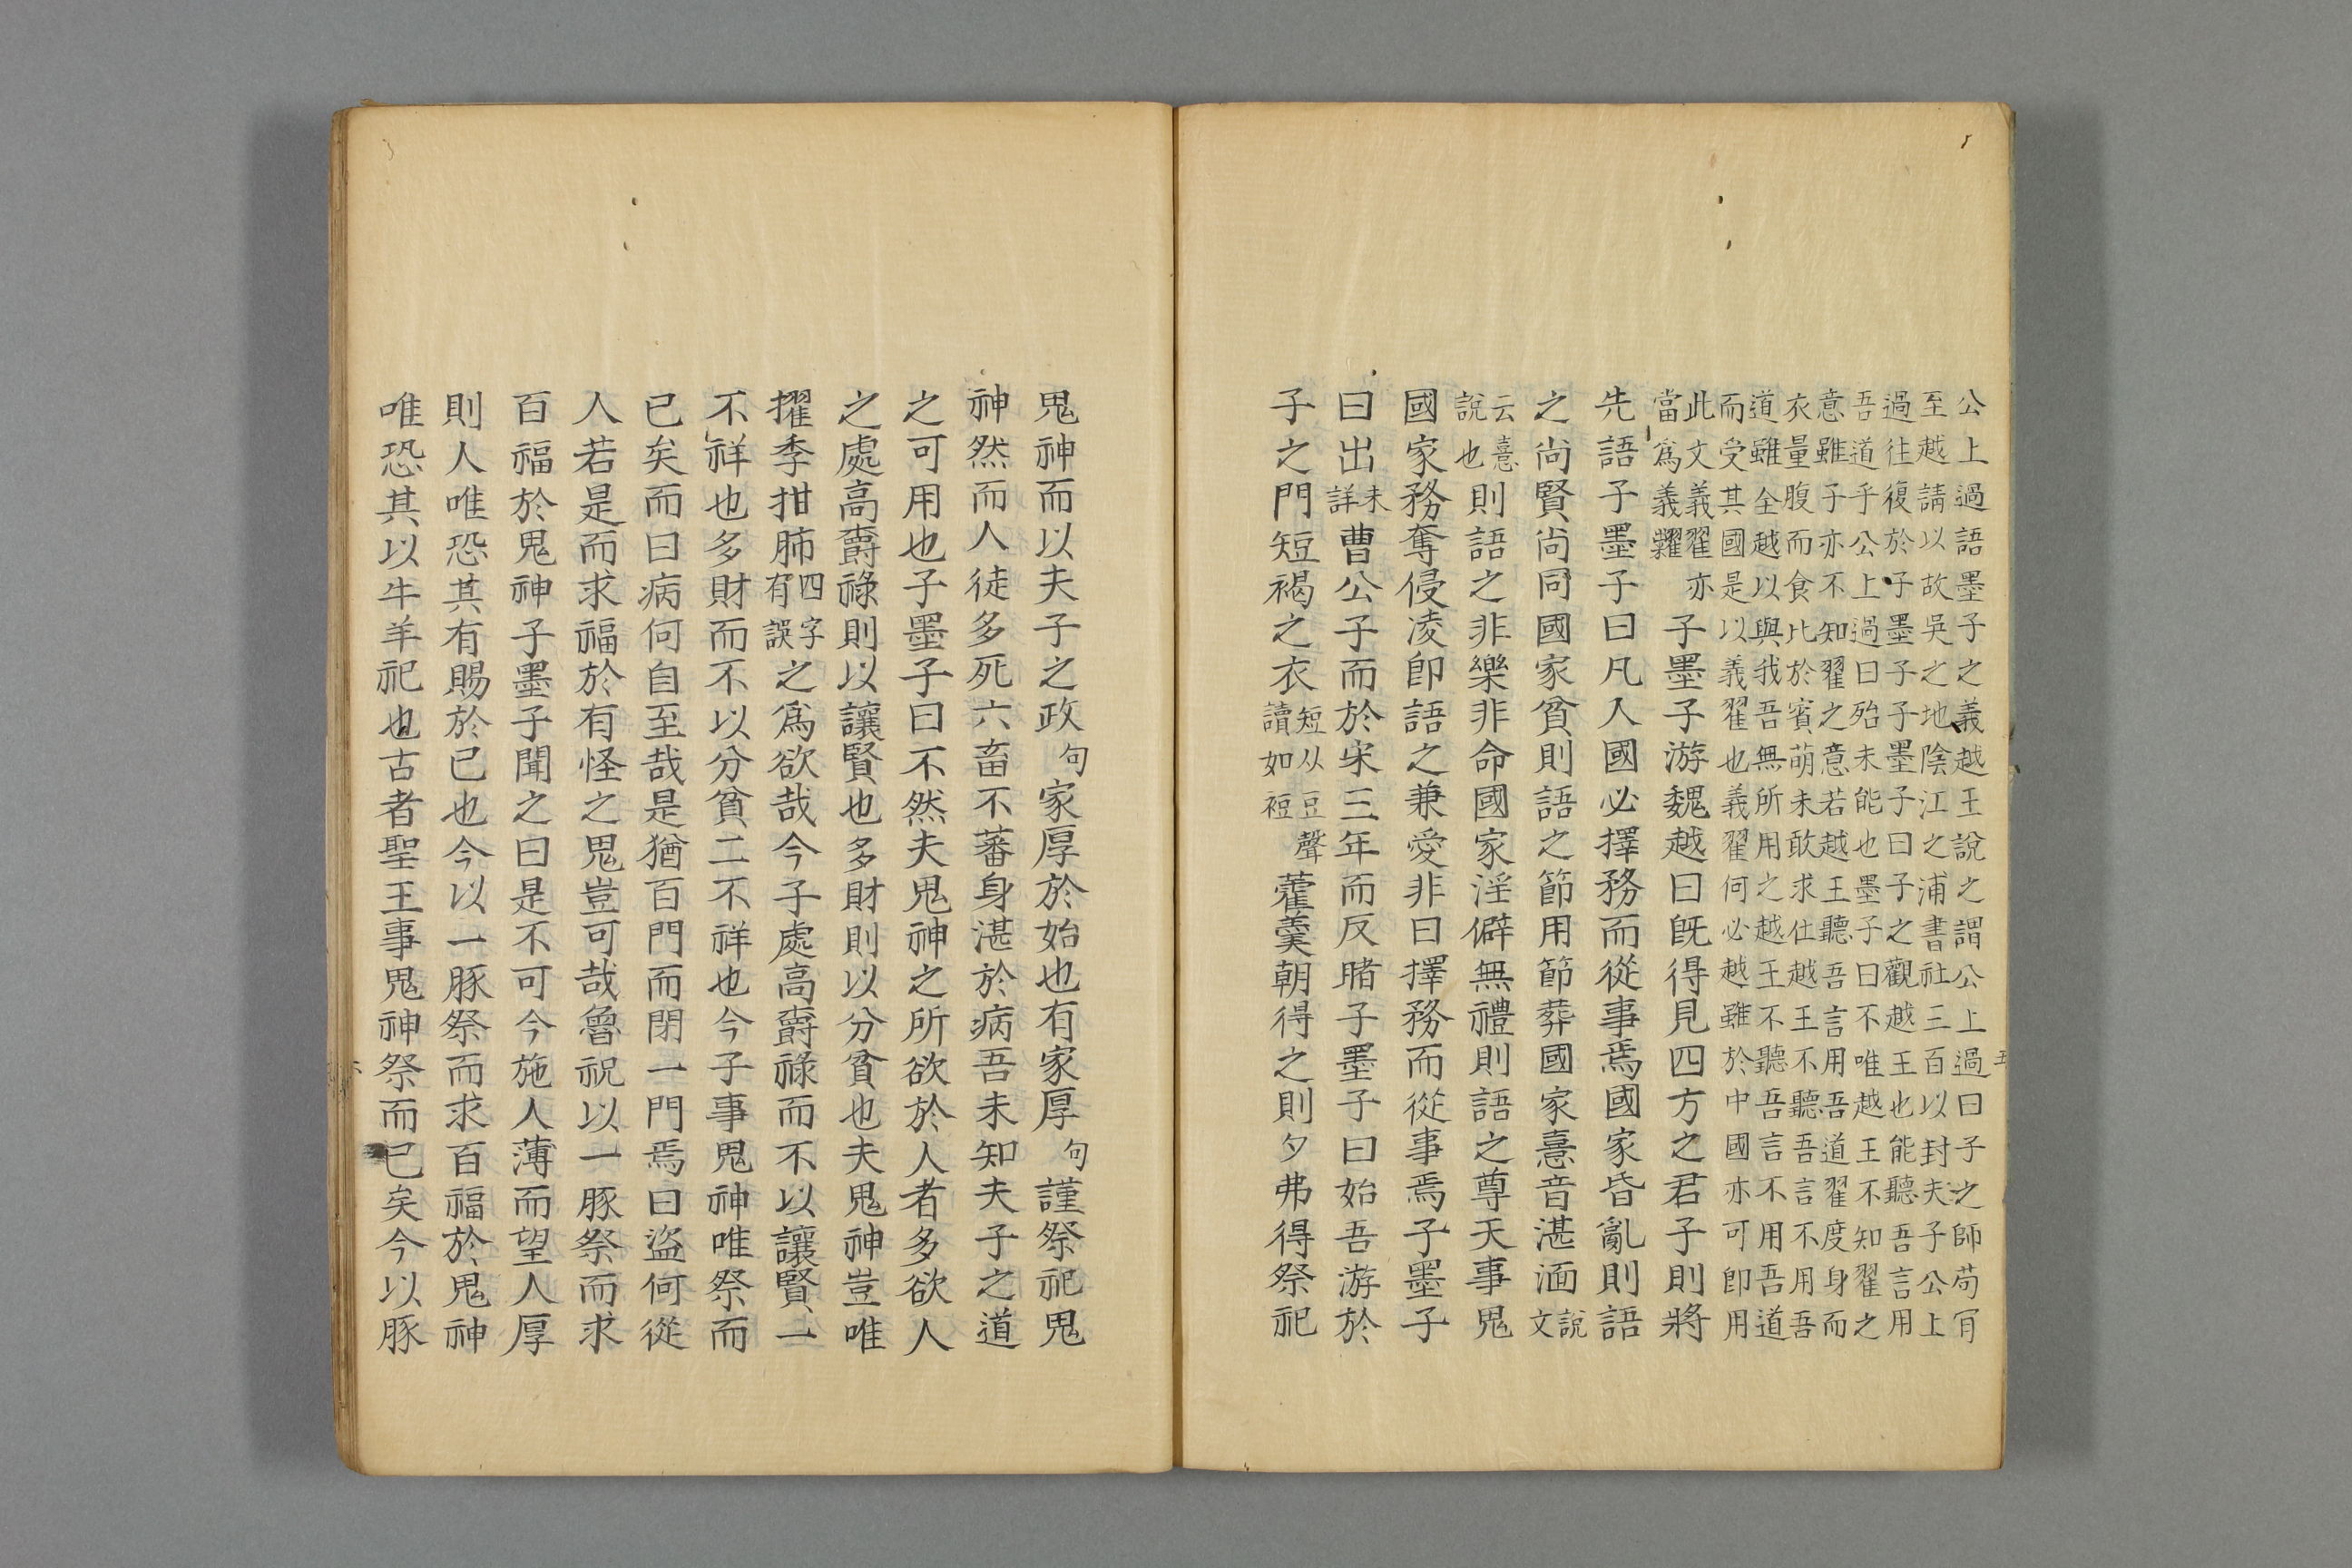 公上過語墨子之義越王說之謂公上過曰子之師苟肎
至越請以故吳之地陰江之浦書社三百以封夫子公上
過往復於子墨子子墨子曰子之觀越王也能聽吾言用
吾道乎公上過曰殆未能也墨子曰不唯越王不知翟之
意雖子亦不知翟之意若越王聽吾言用吾道翟度身而
衣量腹而食比於賓萌未敢求仕越王不聽吾言不用吾
道雖全越以與我吾無所用之越王不聽吾言不用吾道
而受其國是以義翟也義翟何必越雖於中國亦可卽用
此文義翟亦
當爲義糶
子墨子游魏越曰旣得見四方之君子則將
先語子墨子曰凡入國必擇務而從事焉國家昏亂則語
之尚賢尚同國家貧則語之節用節葬國家憙音湛湎說文
云憙說也則語之非樂非命國家淫僻無禮則語之尊天事鬼
國家務奪侵凌卽語之兼愛非曰擇務而從事焉子墨子
曰出未詳曹公子而於宋三年而反睹子墨子曰始吾游於
子之門短褐之衣短从豆聲讀如裋藿羹朝得之則夕弗得祭祀
鬼神而以夫子之政句家厚於始也有家厚句謹祭祀鬼
神然而人徒多死六畜不蕃身湛於病吾未知夫子之道
之可用也子墨子曰不然夫鬼神之所欲於人者多欲人
之處高爵祿則以讓賢也多財則以分貧也夫鬼神豈唯
擢季拑肺四字有誤之爲欲哉今子處高爵祿而不以讓賢一
不祥也多財而不以分貧二不祥也今子事鬼神唯祭而
已矣而曰病何自至哉是猶百門而閉一門焉曰盜何從
入若是而求福於有怪之鬼豈可哉魯祝以一豚祭而求
百福於鬼神子墨子聞之曰是不可今施人薄而望人厚
則人唯恐其有賜於己也今以一豚祭而求百福於鬼神
唯恐其以牛羊祀也古者聖王事鬼神祭而已矣今以豚